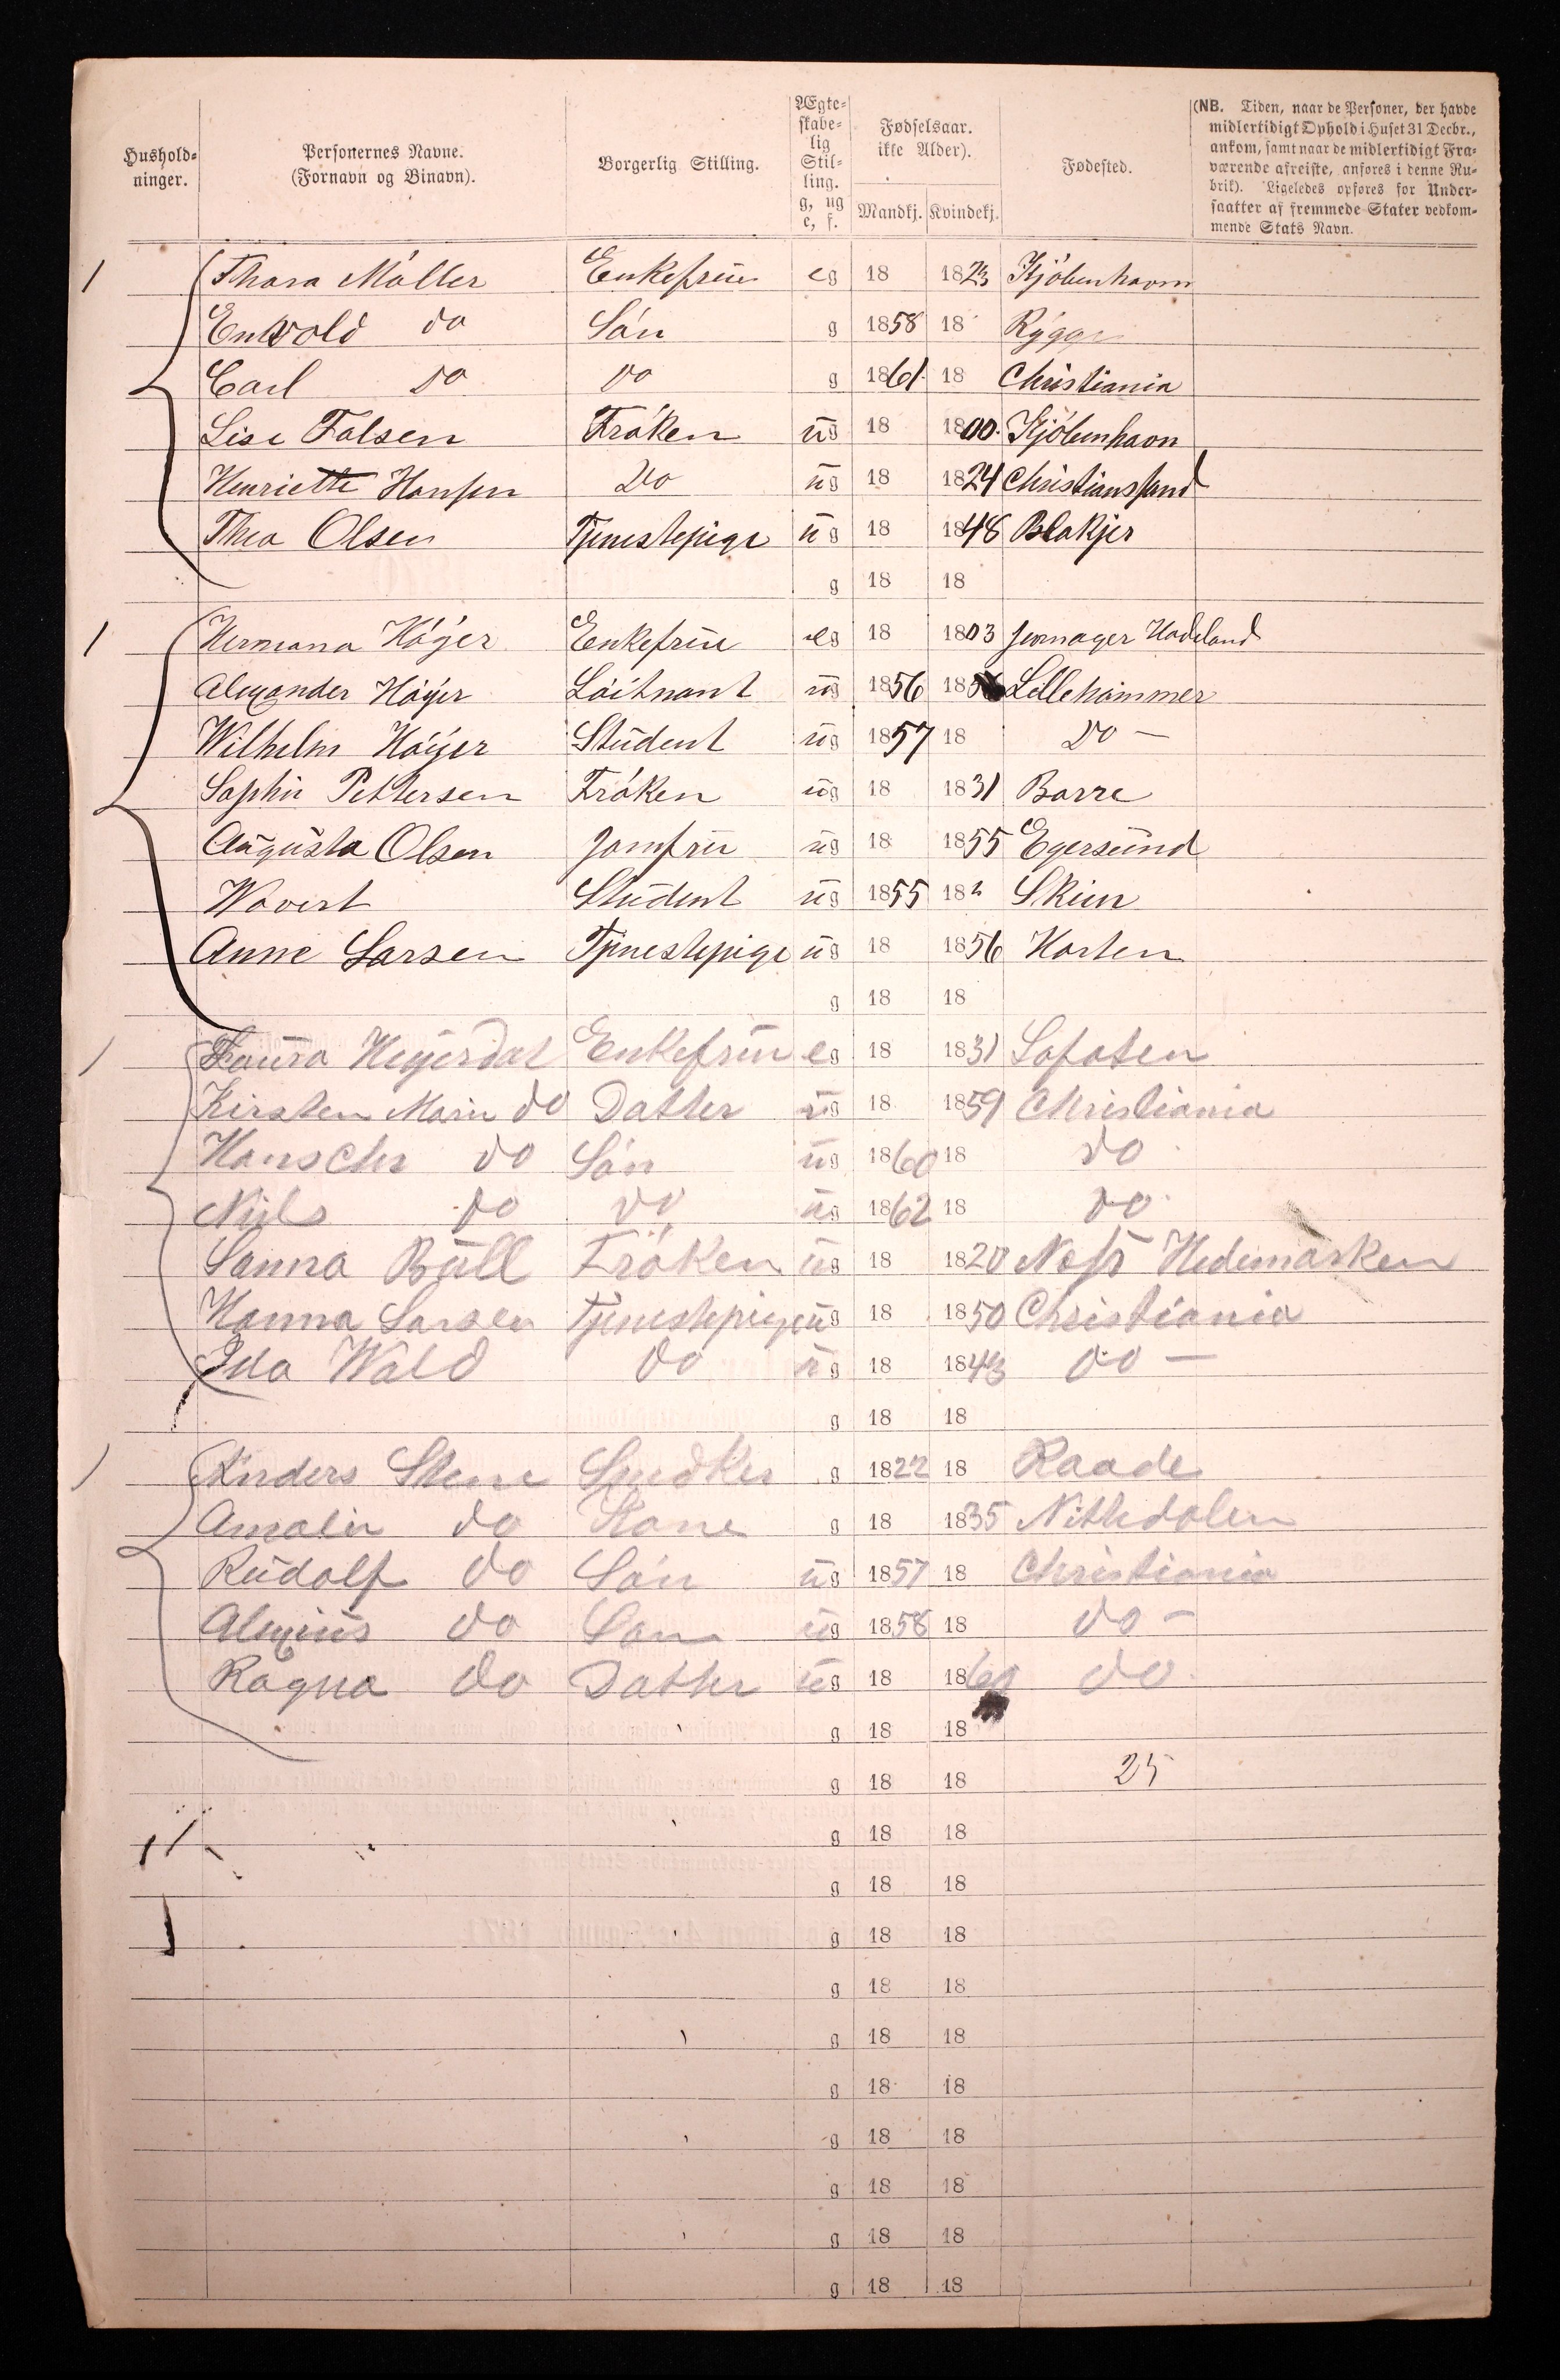 Hushold-
ninger.
Personernes Navne.
(Fornavn og Binavn).
Borgerlig Stilling.
Ægte-
skabe-
lig
Stil-
ling.
g, ug
e, f.
Fødselsaar.
ikke Alder).
Mandkj. Kvindekj.
Fødested.
(NB. Tiden, naar de Personer, der havde
midlertidigt Ophold i Huset 31 Decbr.,
ankom, samt naar de midlertidigt Fra-
værende afreiste, anføres i denne Ru-
brik). Ligeledes opføres for Under-
saatter af fremmede Stater vedkom-
mende Stats Navn.
1 Thora Möller Enkefrue eg 18 1823 Kjöbenhavn
do Sön g 1858 18 Rygge
Carl do do g 1861 18 Christiania
Lise Falsen Fröken ug 18 1800 Kjöbenhavn
Henriette Hansen Do ug 18 1824 Christianssand
Thea Olsen Tjenestepige ug 18 1848 Blakjer
g 18 18
1 Hermana Höyer Enkefrue eg 18 1803 Jevnager Hadeland
Alexander Höyer Löitnant ug 1856 18 Lillehammer
Wilhelm Höyer Student ug 1857 18 Do —
Sophie Pettersen Fröken ug 18 1831 Borre
Augusta Olsen Jomfru ug 18 1855 Egersund
Student ug 1855 18 Skien
Anne Larsen Tjenestepige ug 18 1856 Horten
g 18 18
1 Laura Heyerdal Enkefrue eg 18 1831 Lofoten
Kirsten Marie do Datter ug 18 1859 Christiania
Hans Chr do Sön ug 1860 18 do
Niels do do ug 1862 18 do
Sanna Büll Fröken ug 18 1820 Næss Hedemarken
Hanna Larsen Tjenestepige ug 18 1850 Christiania
Ida Wold do ug 18 1843 do —
g 18 18
1 Anders Stene Snedker g 1822 18 Raade
Amalie do Kone g 18 1835 Nittedalen
Rudolf do Sön ug 1857 18 Christiania
Alexius do Sön ug 1858 18 do —
Ragna do Datter ug 18 1860 do
g 18 18
g 18 18 25
g 18 18
g 18 18
g 18 18
g 18 18
g 18 18
g 18 18
g 18 18
g 18 18
g 18 18
g 18 18